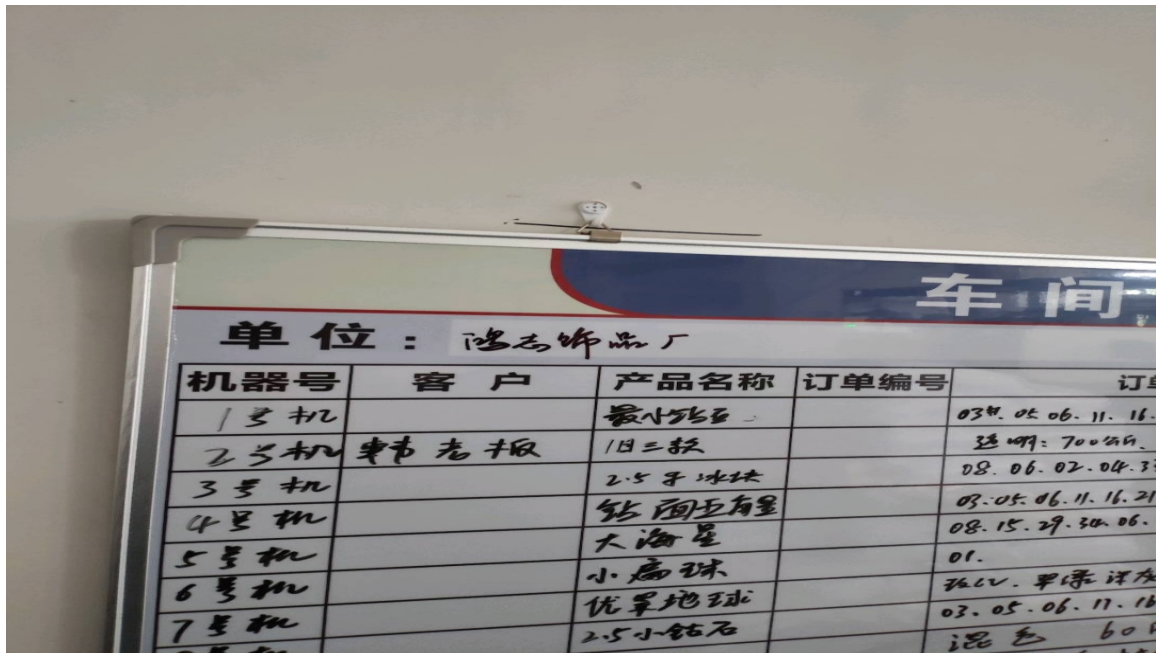 车间
单位：鸿志饰品厂
机器号 客户 产品名称 订单编号 订单
1号机 最小钻石 03#. 05 06. 11. 16.
2号机 韩老板 旧三款 透明：700公斤.
3号机 2.5子冰块 08. 06. 02. 04. 3
4号机 钻面五角星 03. 05. 06. 11. 16. 21
5号机 大海星 08. 15. 29. 34. 06.
6号机 小扁珠 01.
7号机 优罗地球
2.5小钻石 03. 05. 06. 17. 16
混色 60